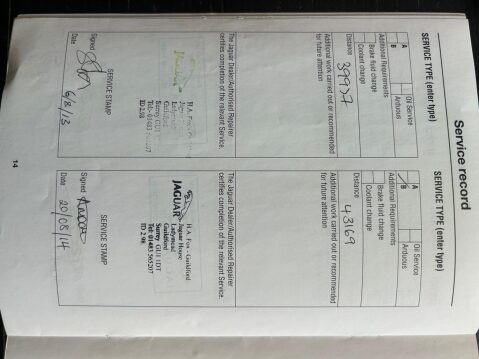 Service record
SERVICE TYPE (enter type)
A
B
Oil Service
Arduous
Additional Requirements
Brake fluid change
Coolant change
Distance 39927
Additional work carried out or recommended
for future attention
The Jaguar Dealer/Authorised Repairer
certifies completion of the relevant Service.
H.A. Fox
Guildford
Surrey GU1
Tel: 01483
ID 298
SERVICE STAMP
Signed
Date 6/8/13
SERVICE TYPE (enter type)
A
B
Oil Service
Arduous
Additional Requirements
Brake fluid change
Coolant change
Distance 43169
Additional work carried out or recommended
for future attention
The Jaguar Dealer/Authorised Repairer
certifies completion of the relevant Service.
JAGUAR
H.A. Fox - Guildford
Jaguar House
Ladymead
Guildford
Surrey GU1 1DT
Tel: 01483 565207
ID 298
SERVICE STAMP
Signed
Date 20/08/14
14